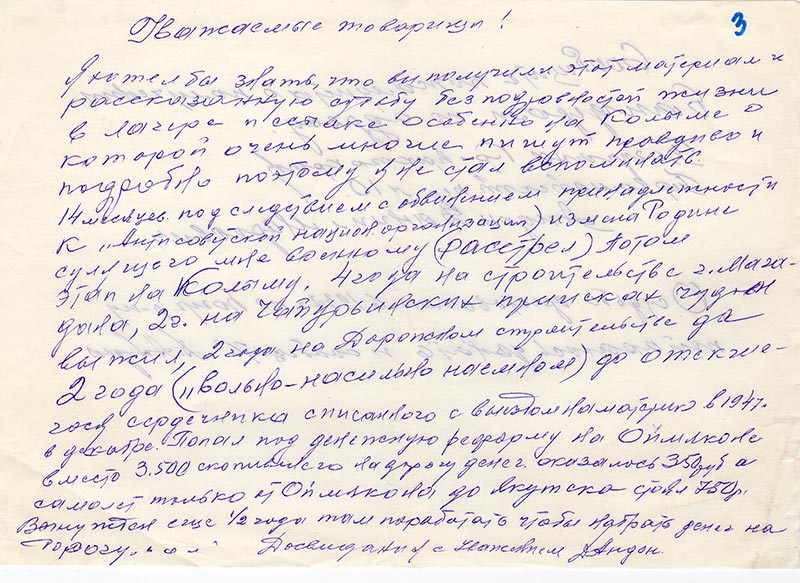 3
Уважаемые товарищи!
Я хотел бы знать, что вы получили этот материал и
рассказанную судьбу без подробностей жизни
в лагере и этапе особенно на Колыме о
которой очень многие пишут правдиво и
подробно поэтому я не стал вспоминать
14 месяцев. под следствием с обвинением принадлежности
к "Антисоветской национ. организации) измена Родине
сулящего мне военному (расстрел) потом
этап на Колыму, 4 года на строительстве г. Мага-
дана, 2 г. на Чатурьинских приисках чудом
выжил, 2 года на Дорожном строительстве да
2 года ("вольно-насильно наемном) до отекше-
гося сердечника списанного с выездом на материк в 1947 г.
в декабре. Попал под денежную реформу на Оймяконе
вместо 3.500 скопленного на дорогу денег. оказалось 350 руб а
самолет только от Оймякона до Якутска стоял 750 р.
еще 1/2 года там поработать чтобы набрать денег на
дорогу
Досвидания с уважением